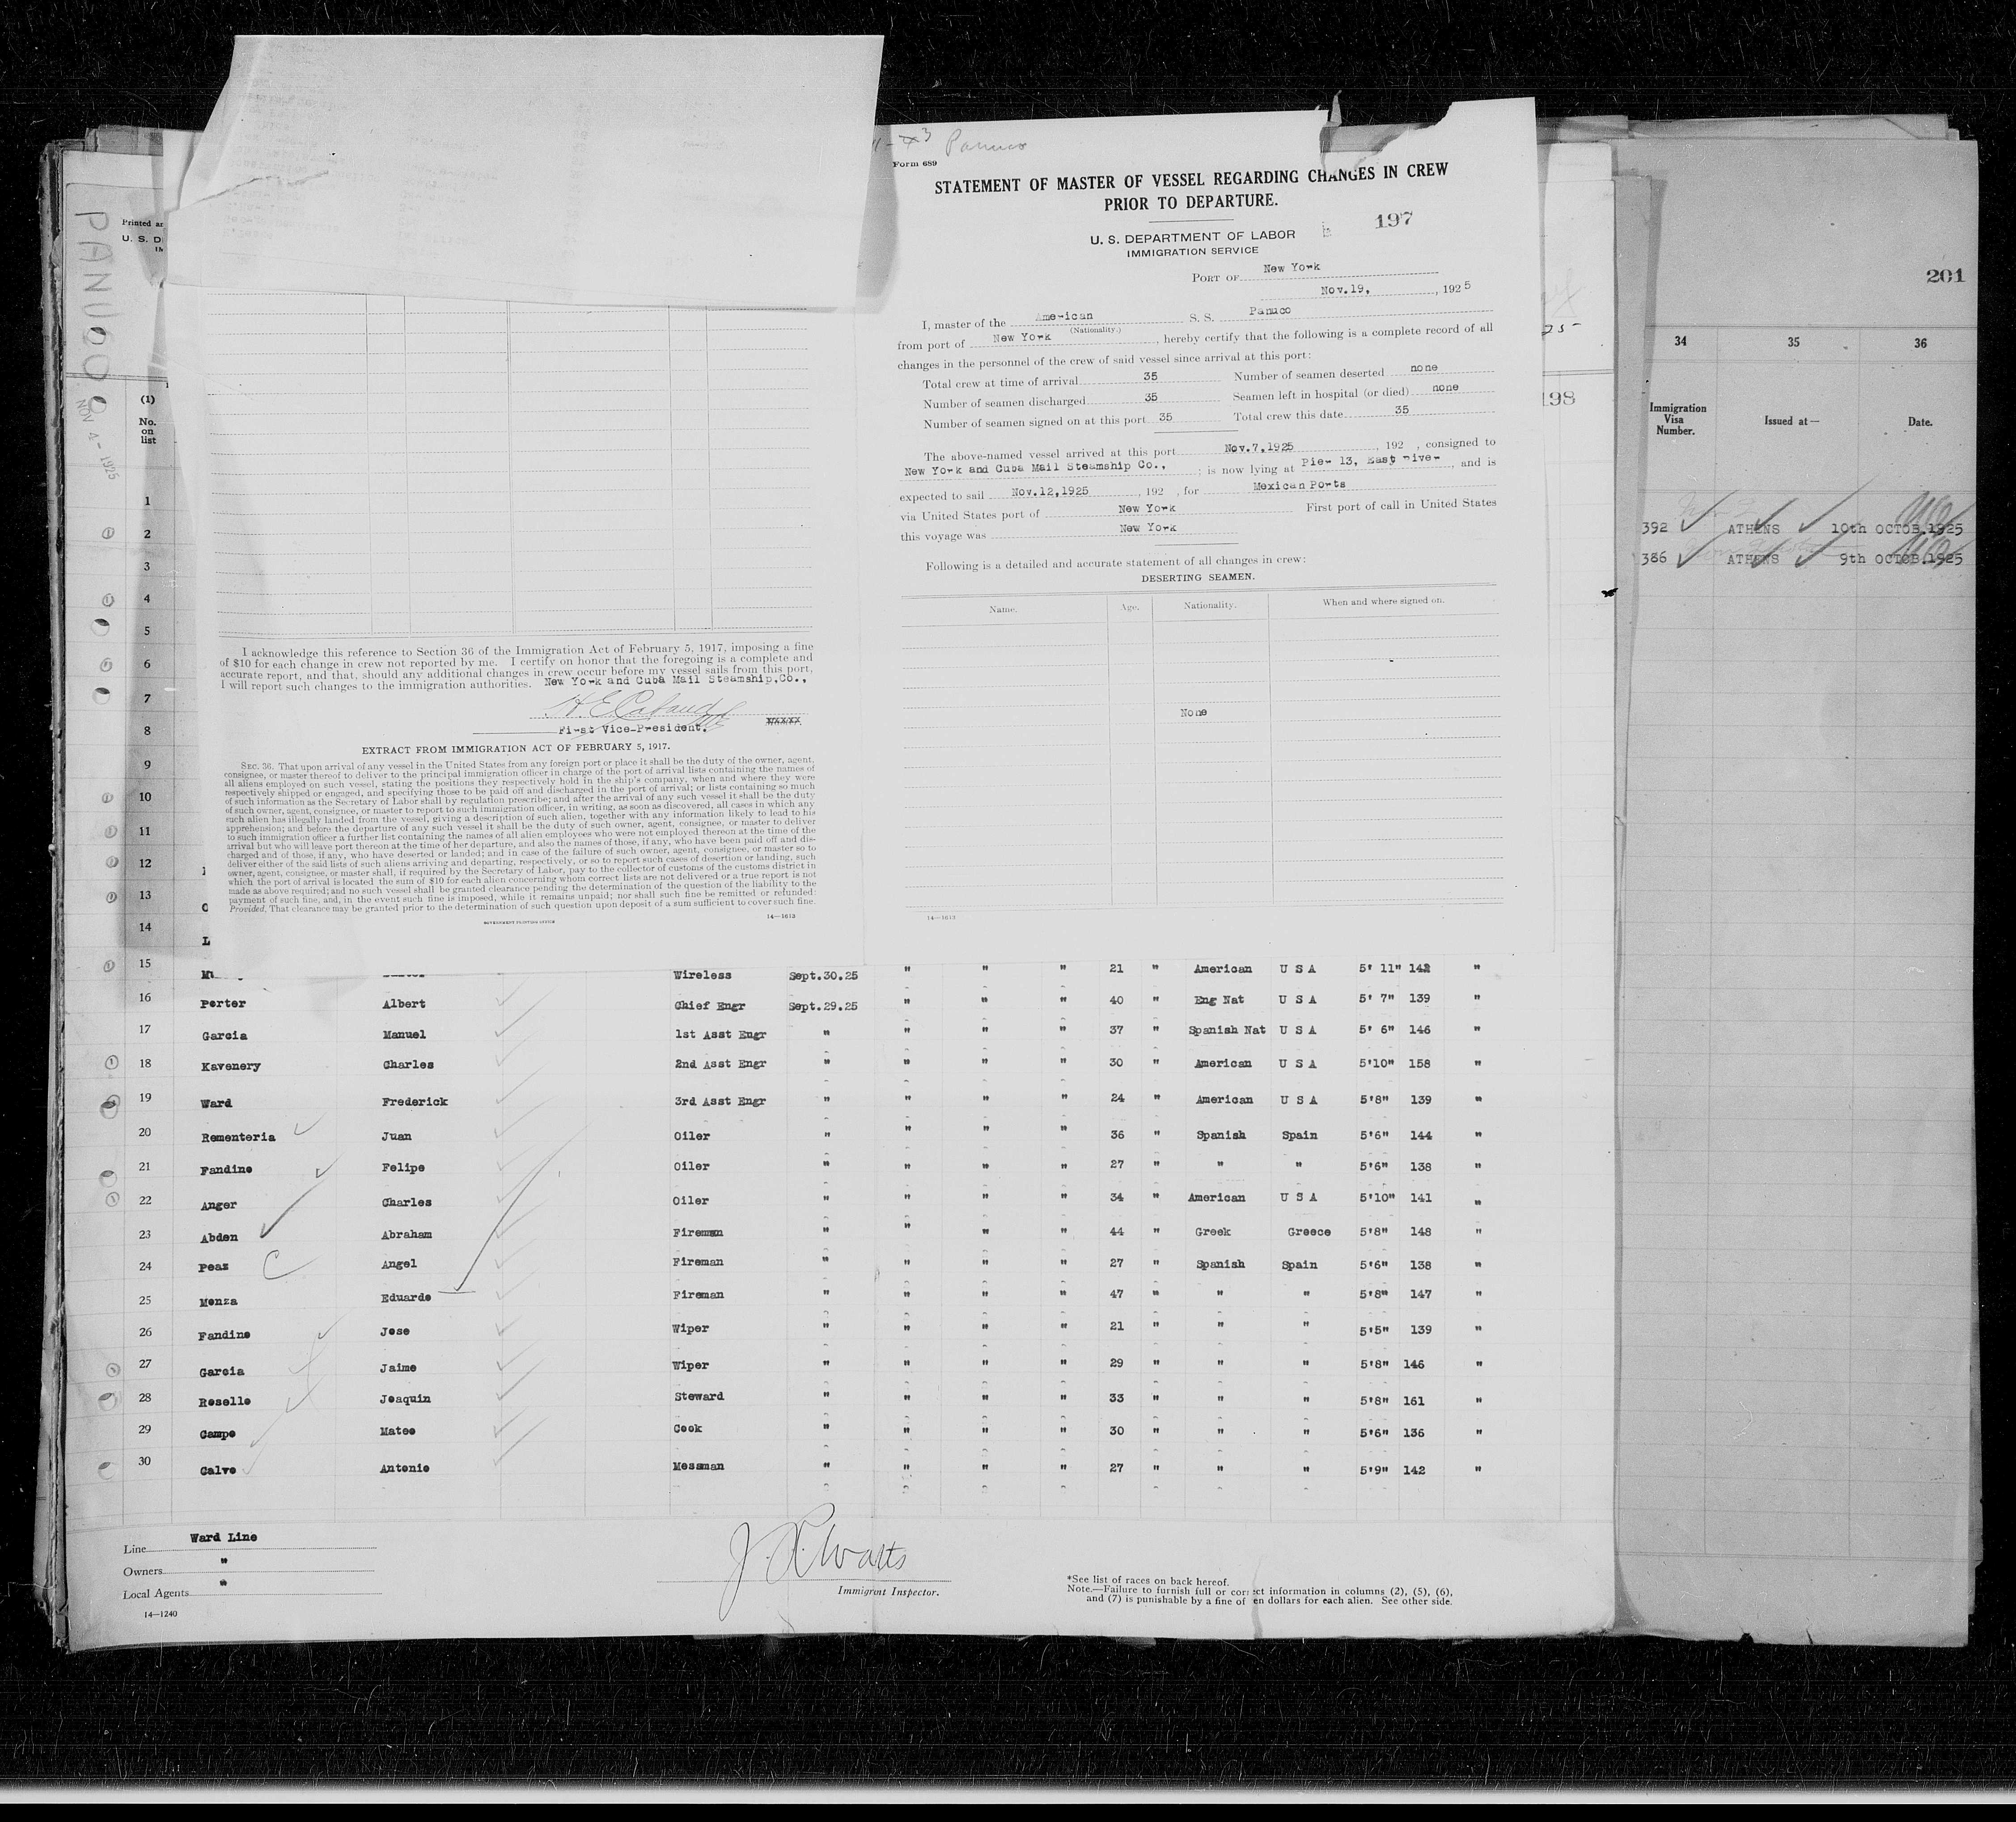 Panuco
Form 689
STATEMENT OF MASTER OF VESSEL REGARDING CHANGES IN CREW
PRIOR TO DEPARTURE.
197
U. S. DEPARTMENT OF LABOR
IMMIGRATION SERVICE
PORT OF New York
Nov.19, , 1925
I, master of the American S. S. Panuco
(Nationality.)
from port of New York, hereby certify that the following is a complete record of all
changes in the personnel of the crew of said vessel since arrival at this port:
Total crew at time of arrival 35 Number of seamen deserted none
Number of seamen discharged 35 Seamen left in hospital (or died) none
Number of seamen signed on at this port 35 Total crew this date 35
The above-named vessel arrived at this port Nov.7,1925, 192 , consigned to
New York and Cuba Mail Steamship Co., ; is now lying at Pier 13, East River, and is
expected to sail Nov.12,1925, 192 , for Mexican Ports
via United States port of New York First port of call in United States
this voyage was New York
Following is a detailed and accurate statement of all changes in crew:
DESERTING SEAMEN.
Name. Age. Nationality. When and where signed on.
None
14—1613
I acknowledge this reference to Section 36 of the Immigration Act of February 5, 1917, imposing a fine
of $10 for each change in crew not reported by me. I certify on honor that the foregoing is a complete and
accurate report, and that, should any additional changes in crew occur before my vessel sails from this port,
I will report such changes to the immigration authorities. New York and Cuba Mail Steamship,Co.,
First Vice-President.
EXTRACT FROM IMMIGRATION ACT OF FEBRUARY 5, 1917.
SEC. 36. That upon arrival of any vessel in the United States from any foreign port or place it shall be the duty of the owner, agent,
consignee, or master thereof to deliver to the principal immigration officer in charge of the port of arrival lists containing the names of
all aliens employed on such vessel, stating the positions they respectively hold in the ship's company, when and where they were
respectively shipped or engaged, and specifying those to be paid off and discharged in the port of arrival; or lists containing so much
of such information as the Secretary of Labor shall by regulation prescribe; and after the arrival of any such vessel it shall be the duty
of such owner, agent, consignee, or master to report to such immigration officer, in writing, as soon as discovered, all cases in which any
such alien has illegally landed from the vessel, giving a description of such alien, together with any information likely to lead to his
apprehension; and before the departure of any such vessel it shall be the duty of such owner, agent, consignee, or master to deliver
to such immigration officer a further list containing the names of all alien employees who were not employed thereon at the time of the
arrival but who will leave port thereon at the time of her departure, and also the names of those, if any, who have been paid off and dis-
charged and of those, if any, who have deserted or landed; and in case of the failure of such owner, agent, consignee, or master so to
deliver either of the said lists of such aliens arriving and departing, respectively, or so to report such cases of desertion or landing, such
owner, agent, consignee, or master shall, if required by the Secretary of Labor, pay to the collector of customs of the customs district in
which the port of arrival is located the sum of $10 for each alien concerning whom correct lists are not delivered or a true report is not
made as above required; and no such vessel shall be granted clearance pending the determination of the question of the liability to the
payment of such fine, and, in the event such fine is imposed, while it remains unpaid; nor shall such fine be remitted or refunded:
Provided, That clearance may be granted prior to the determination of such question upon deposit of a sum sufficient to cover such fine.
GOVERNMENT PRINTING OFFICE 14—1613
PANUCO
NOV 4-1925
Printed
U. S. D
(1)
No.
on
list
1
2
3
4
5
6
7
8
9
10
11
12
13
14
15 Wireless Sept.30.25 " " " 21 " American U S A 5' 11" 142 "
16 Porter Albert Chief Engr Sept.29.25 " " " 40 " Eng Nat U S A 5' 7" 139 "
17 Garcia Manuel 1st Asst Engr " " " " 37 " Spanish Nat U S A 5' 6" 146 "
18 Kavenery Charles 2nd Asst Engr " " " " 30 " American U S A 5'10" 158 "
19 Ward Frederick 3rd Asst Engr " " " " 24 " American U S A 5'8" 139 "
20 Rementeria Juan Oiler " " " " 36 " Spanish Spain 5'6" 144 "
21 Fandino Felipe Oiler " " " " 27 " " " 5'6" 138 "
22 Anger Charles Oiler " " " " 34 " American U S A 5'10" 141 "
23 Abden Abraham Fireman " " " " 44 " Greek Greece 5'8" 148 "
24 Peaz Angel Fireman " " " " 27 " Spanish Spain 5'6" 138 "
25 Menza Eduardo Fireman " " " " 47 " " " 5'8" 147 "
26 Fandino Jose Wiper " " " " 21 " " " 5'5" 139 "
27 Garcia Jaime Wiper " " " " 29 " " " 5'8" 146 "
28 Roselle Joaquin Steward " " " " 33 " " " 5'8" 161 "
29 Campo Mateo Cook " " " " 30 " " " 5'6" 136 "
30 Calvo Antonio Messman " " " " 27 " " " 5'9" 142 "
Line Ward Line
Owners "
Local Agents "
14—1240
Immigrant Inspector.
*See list of races on back hereof.
Note.—Failure to furnish full or correct information in columns (2), (5), (6),
and (7) is punishable by a fine of ten dollars for each alien. See other side.
198
201
34 35 36
Immigration
Visa
Number.
Issued at—
Date.
392 ATHENS 10th OCTOB.1925
386 ATHENS 9th OCTOB.1925